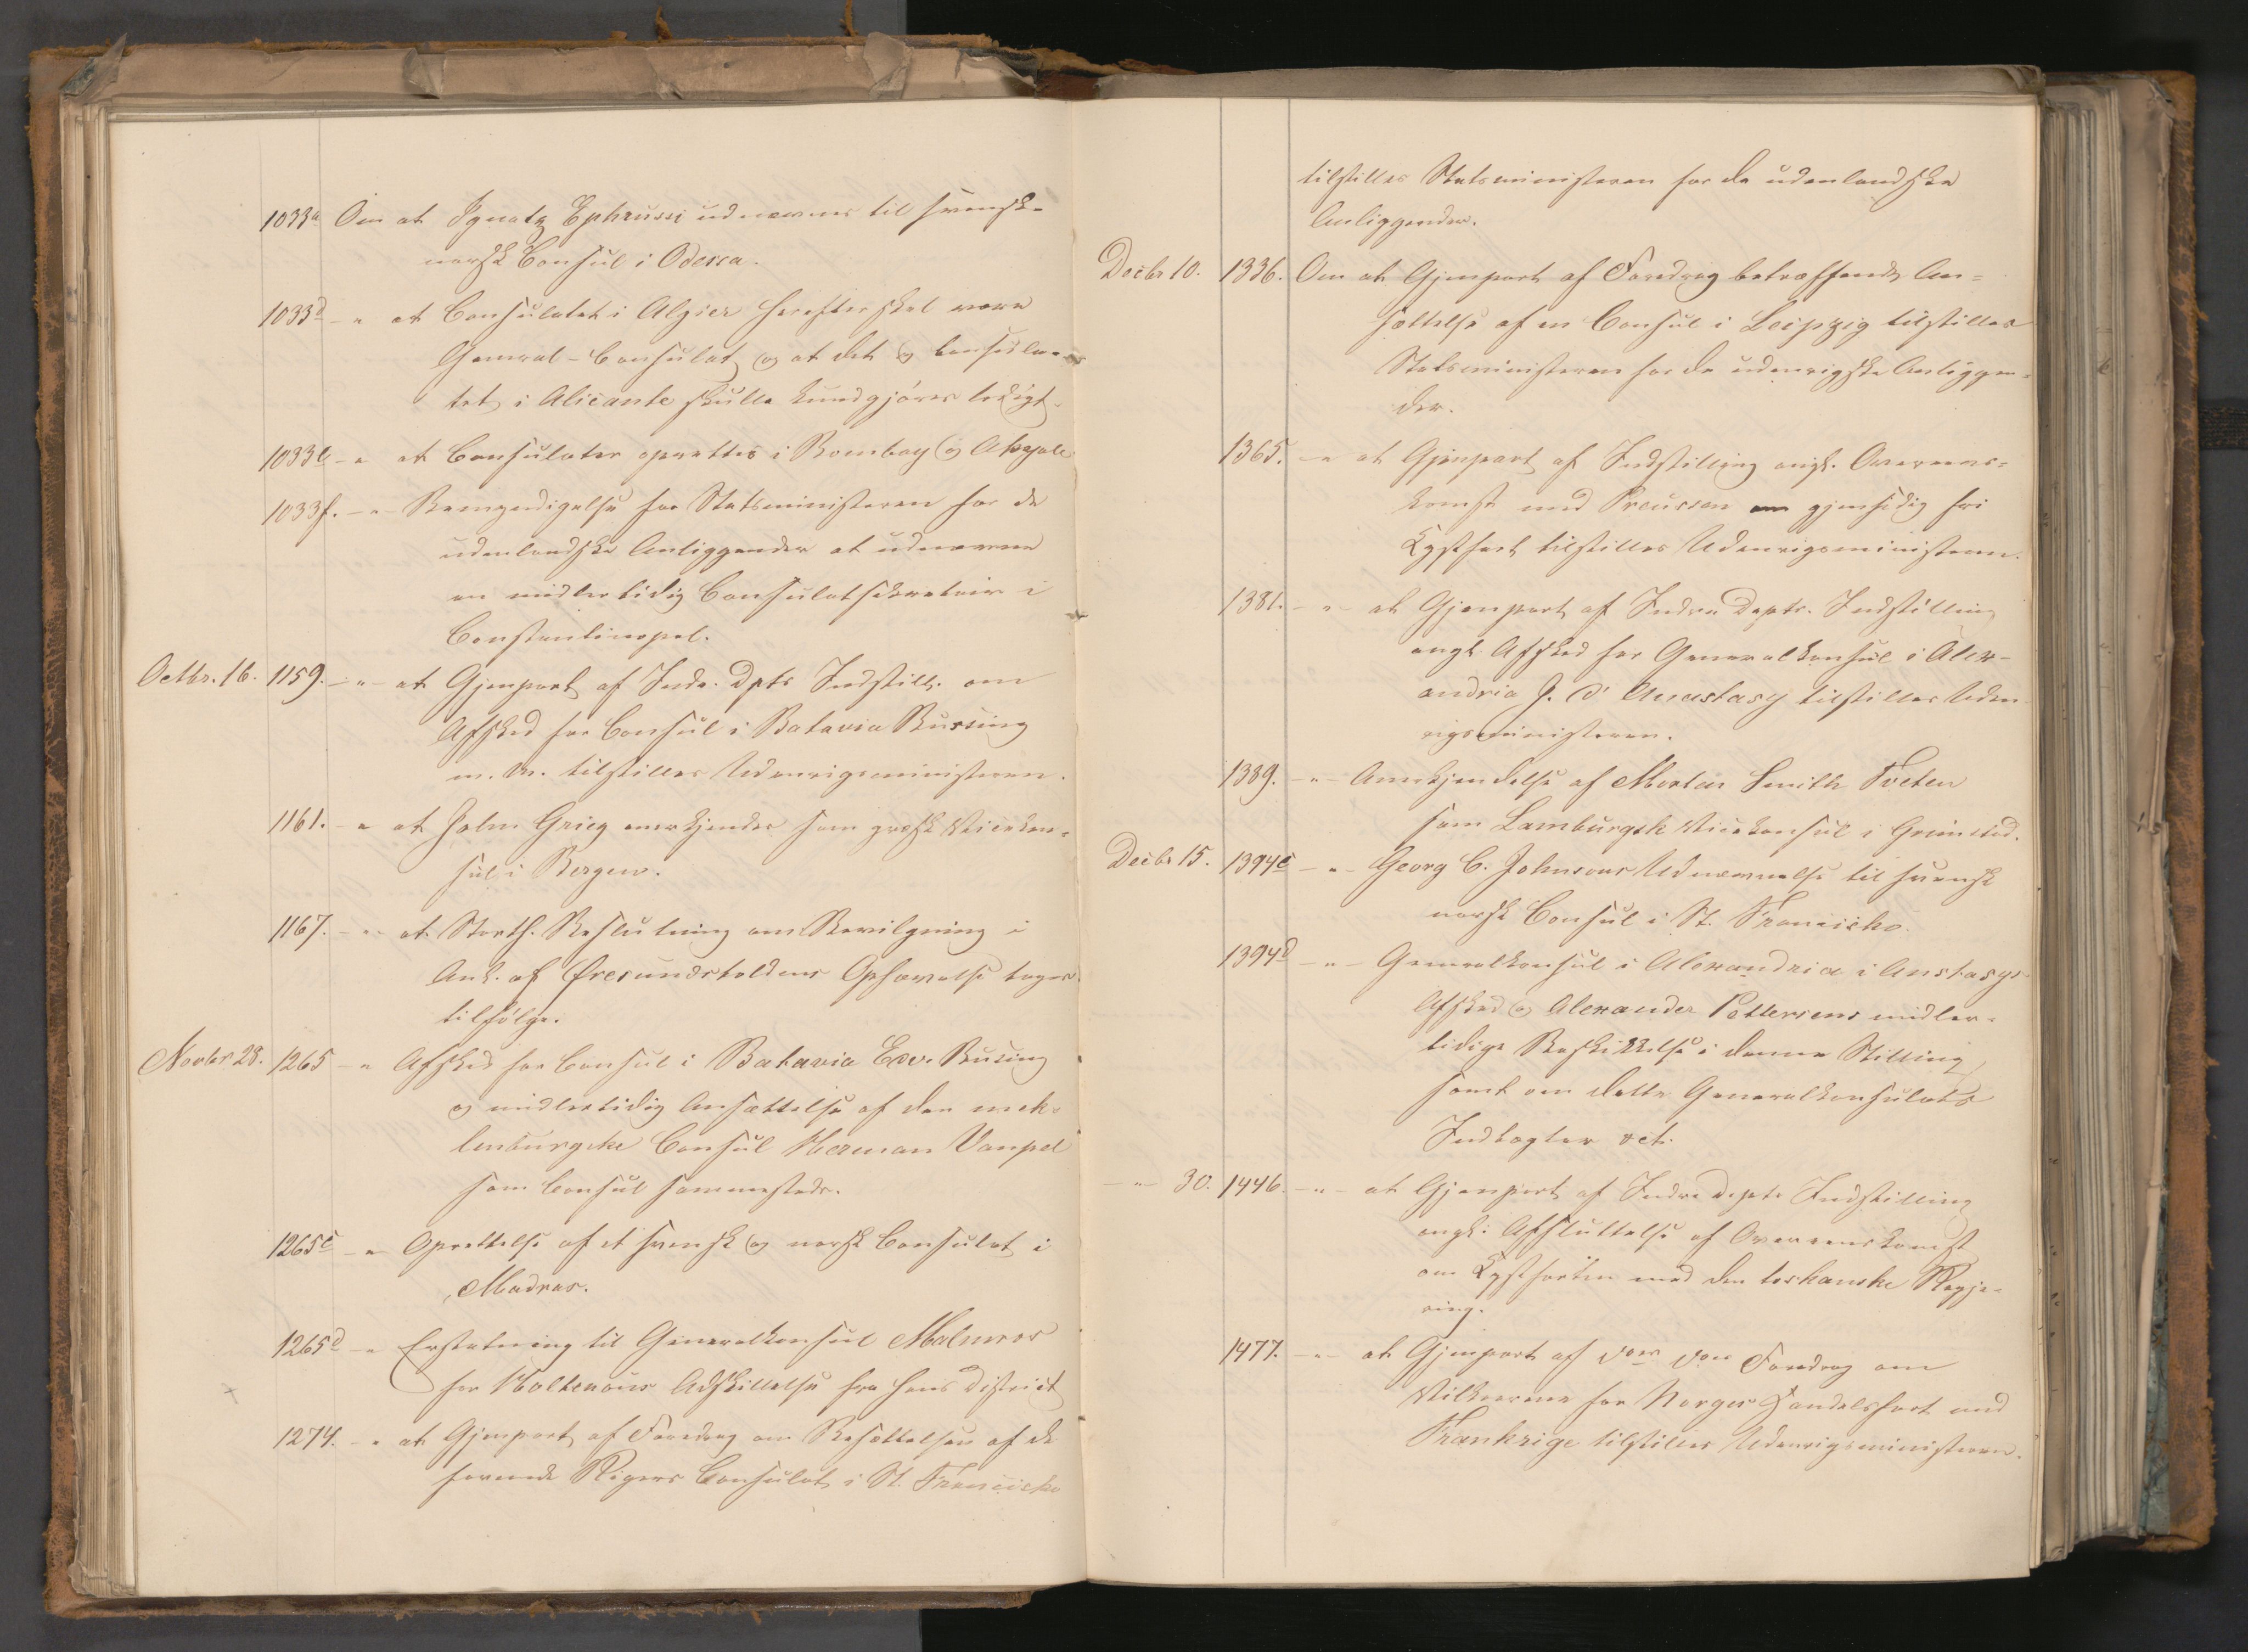 1033a Om at Ignatz Ephrussi udnævnes til svensk-
norsk Consul i Odessa.
1033d - " at Consulatet i Algier herefter skal være
General-Consulat og at det og Consula-
tet i Alicante skulle kundgjøres ledigt.
1033e - " at Consulater oprettes i Bombay og Akyab
1033f. - " - Bemyndigelse for Statsministeren for de
udenlandske Anliggender at udnævne
en midlertidig Consulatsekretair i
Constantinopel.
Octbr. 16. 1159. - " - at Gjenpart af Indr. Dpts Indstill. om
Afsked for Consul i Batavia Bussing
m. M. tilstilles Udenrigsministeren.
1161. - " at John Grieg anerkjendes som græsk Vicekon-
sul i Bergen.
1167. - " - at Storth. Beslutning om Bevilgning i
Anl. af Øresundstoldens Ophævelse tages
tilfølge.
Novbr 28. 1265 - " Afsked for Consul i Batavia Edv. Busing
og midlertidig Ansættelse af den mek-
lenburgske Consul Herman Vanpel
som Consul sammesteds.
1265c - " Oprettelse af et svensk og norsk Consulat i
Madras.
1265d - " Erstatning til Generalkonsul Malmros
for Holtenous Adskillelse fra hans District
1274. - " at Gjenpart af Foredrag om Besættelsen af de
forenede Rigers Consulat i St. Francisko
tilstilles Statsministeren for de udenlandske
Anliggender.
Decbr 10. 1336. Om at Gjenpart af Foredrag betræffende An-
sættelse af en Consul i Leipzig tilstilles
Statsministeren for de udenrigske Anliggen-
der.
1365. - " at Gjenpart af Indstilling angl. Overens-
komst med Preussen om gjensidig fri
Kystfart tilstilles Udenrigsministeren.
1381. - " - at Gjenpart af Indre Depts. Indstilling
angl. Afsked for Generalkonsul i Alex-
andria J. d'Anastasy tilstilles Uden
rigsministeren.
1389. - " - Anerkjendelse af Morten Smith Tveten
som Lamburgsk Vicekonsul i Grimstad.
Decbr 15. 1394c - " - Georg C. Johnsons Udnævnelse til svensk
norsk Consul i St. Francisko.
1394d - " - Generalkonsul i Alexandria i Anstasys
Afsked og Alexander Pettersens midler-
tidige Beskikkelse i denne Stilling,
samt om dette Generalkonsulats
Indtægter ect.
- " - 30. 1446. - " - at Gjenpart af Indre Depts Indstilling
angl. Afsluttelse af Overenskomst
om Kystfarten med den toskanske Regje-
ring.
1477. - " - at Gjenpart af do do Foredrag om
Vilkaarene for Norges Handelsfart med
Frankrige tilstilles Udenrigsministeren.